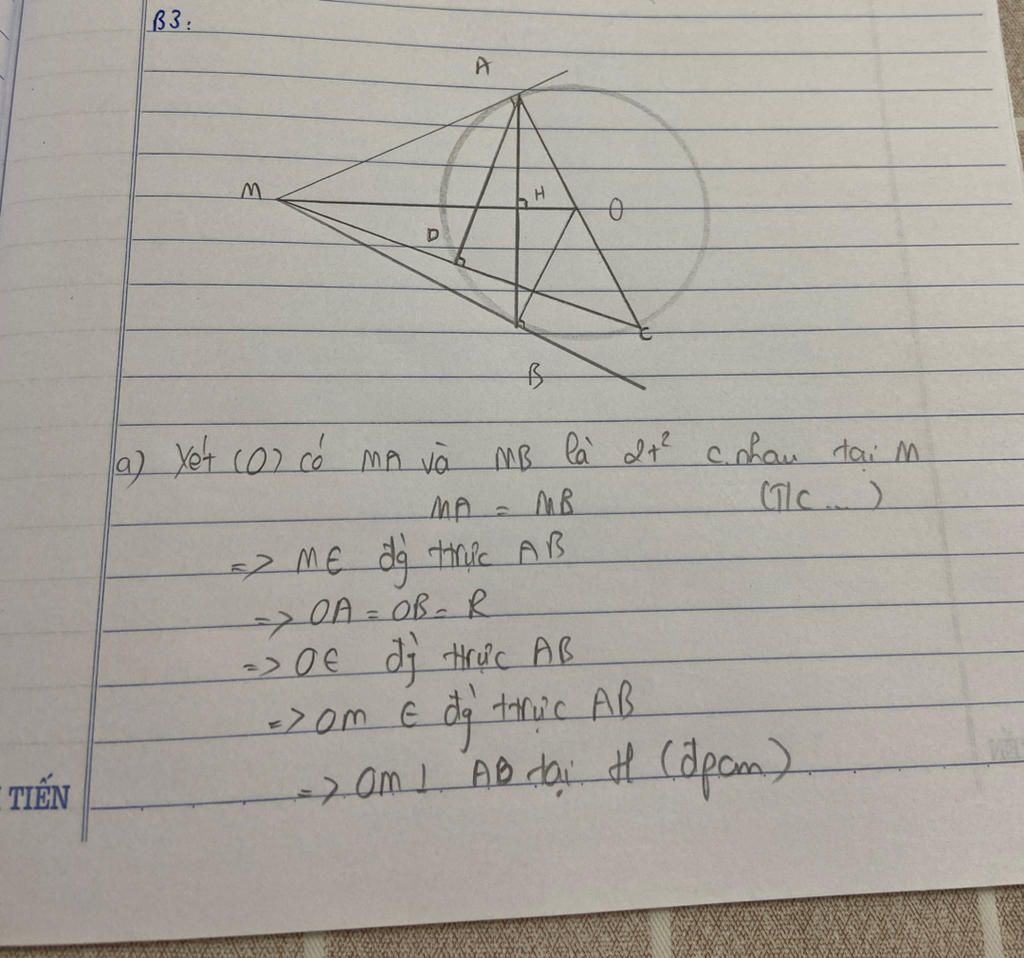 B3:
A
M
H
O
D
C
B
a) Xét (O) có MA và MB là 2t² c.nhau tại M
MA = MB (T/c ...)
=> M ∈ đg̀ trực AB
=> OA = OB = R
=> O ∈ đg̀ trực AB
=> OM ∈ đg̀ trực AB
=> OM ⊥ AB tại H (đpcm)
TIẾN